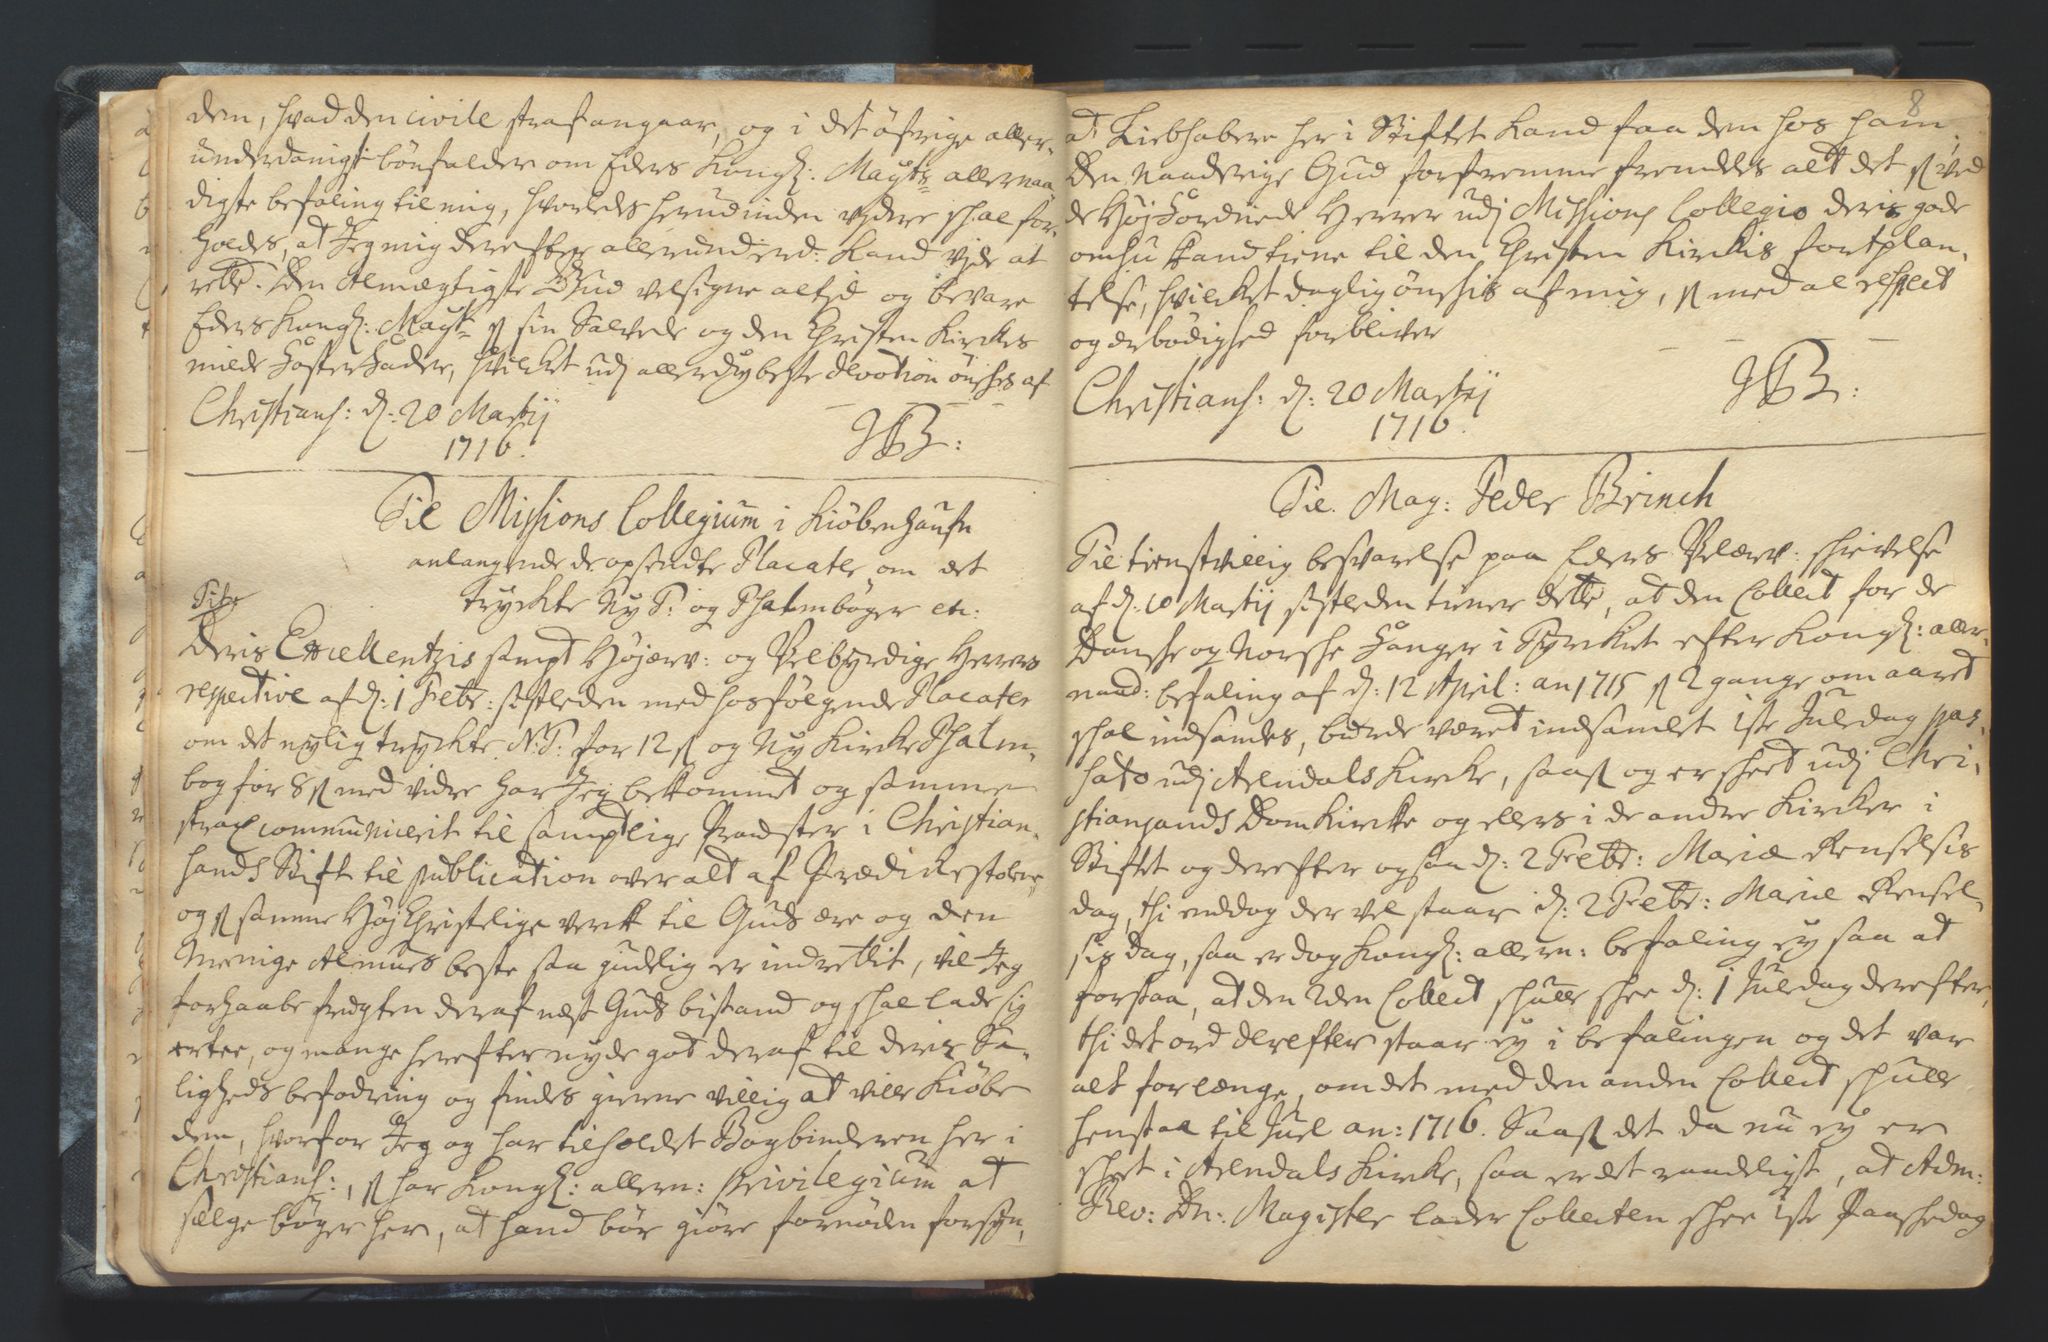 dem, hvad den civile straf angaar, og i det öfrige aller-
underdanigst bönfalder om Eders Kongl: Mayts allernaa-
digste befaling til mig, hvorledes herudinden vjdere skal for-
holdes, at Jeg mig derefter allerunderd: kand vjde at
rette. Den Almægtigste Gud velsigne altjd og bevare
Eders Kongl: Mayt som sin Salvede og den Christen Kirckes
milde Foster Fader, hvilket udj allerdybeste devotion önskes af
Christians: d: 20 Martij
1716.
JB:
Til Missions Collegium i Kiöbenhaufn
anlangende de opsendte Placater om det
tryckte Ny T: og Psalmböger etc:
Tit:
Deris Excellentzis sampt Höjærv: og Velbyrdige Herrers
respective af d: 1 Febr: sistleden med hosfölgende Placater
om det nylig tryckte N: T: for 12 s og Ny Kircke Psalm-
bog for 8 s med vidre har Jeg bekommet og samme
strax communicerit til samptlige Provster i Christian-
sands Stift til publication over alt af Prædickestolene,
og som samme Höj Christelige verk til Guds ære og den
Menige Almues beste saa gudelig er indrettit, vil Jeg
forhaabe frugten deraf næst Guds bistand og skal lade sig
ertee, og mange herefter nyde got deraf til deris Sa-
ligheds befodring og findes gierne villig at ville Kiöbe
dem, hvorfor Jeg og har tilholdet Bogbinderen her i
Christians:, som har Kongl: allern: privilegium at
sælge böger her, at hand bör giöre fornöden forsyn,
8
at Liebhabere her i Stiftet kand faa dem hos ham.
Den Naaderige Gud forfremme fremdeles alt det som ved
de Höj Fornemme Herrer udj Missions Collegio deris gode
omhu kand tiene til den Christen Kirckis fortplan-
telse, hvilcket daglig önskis af mig, som med al respect
og ærbödighed forbliver
Christians: d: 20 Martij
1716.
JB:
Til Mag: Peder Brinch
Til tienstvillig besvarelse paa Eders Velærv: skrivelse
af d: 10 Martij sistleden tiener dette, at den Collect for de
Danske og Norske Fanger i Tyrkiet efter Kongl: aller-
naad: befaling af d: 12 April: an 1715 som 2 gange om aaret
skal indsamles, burde været indsamlet 1ste Juledag pas-
sato udj Arendals Kircke, saasom og er skeet udj Chri-
stiansands Dom Kircke og ellers i de andre Kircker i
Stiftet og derefter ogsaa d: 2 Febr: Mariæ Renselsis
dag, thi endog der vel staar d: 2 Febr: Mariæ Rensel-
sis dag, saa er dog Kongl: allern: befaling ey saa at
forstaa, at den 2den Collect skulle skee d: 1 Juledag derefter,
thi det ord derefter staar ey i befalingen og det var
alt for længe, om det med den anden Collect skulle
henstaa til Juel an: 1716. Saasom det da nu ey er
skeet i Arendals Kircke, saa er det raadeligst, at Adm:
Rev: Dn: Magister lader Collecten skee 1ste Paaskedag